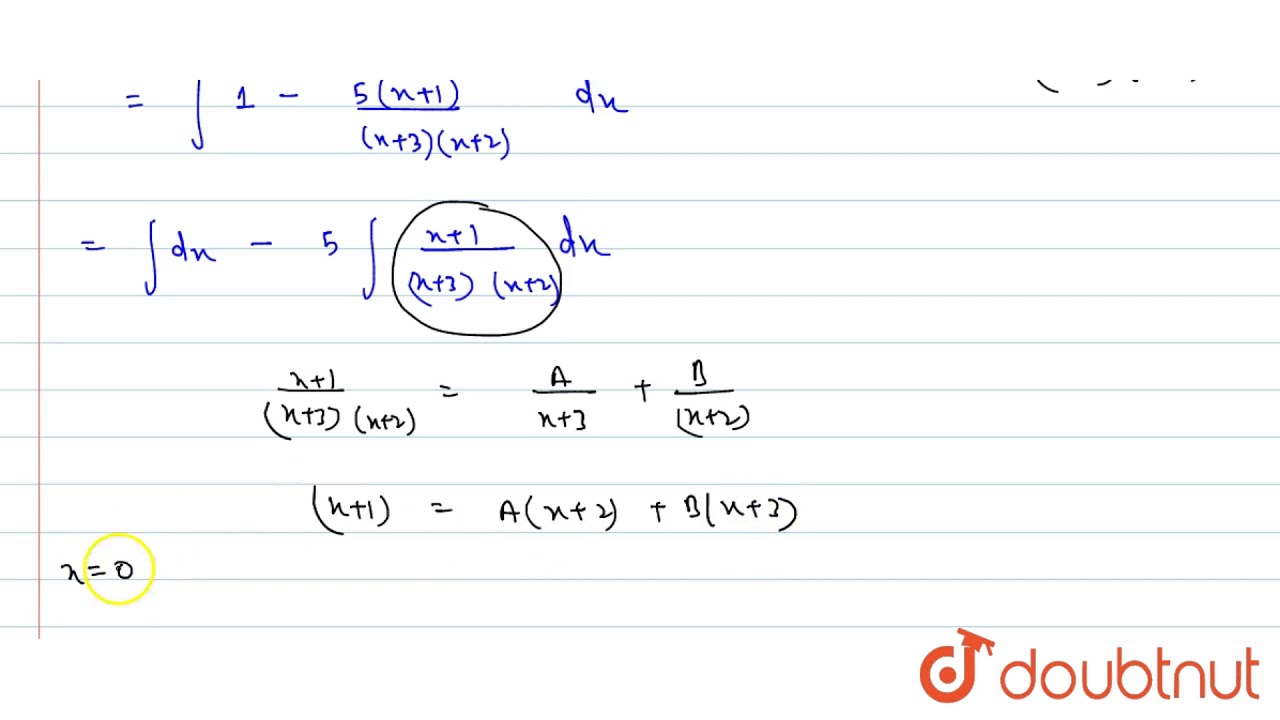 = ∫ 1 - 5(x+1)/(x+3)(x+2) dx
= ∫ dx - 5 ∫ x+1/(x+3) (x+2) dx
x+1/(x+3) (x+2) = A/x+3 + B/(x+2)
(x+1) = A(x+2) + B(x+3)
x=0
doubtnut